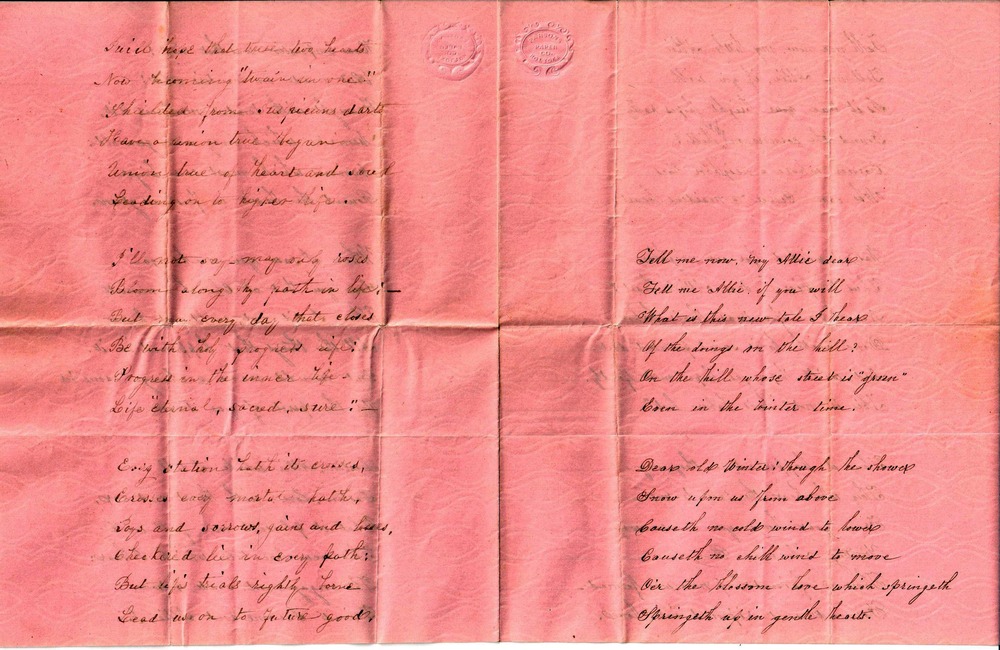 hope that these two hearts
Now becoming "twain in one"
Shielded from suspicions darts
Have a union true begun
Union true of heart and soul
Leading on to higher life.
I'll not say may only roses
Bloom along thy path in life; —
But may every day that closes
Be with holy progress rife;
Progress in the inner life —
Life "eternal, sacred, sure." —
Every station hath its crosses,
Crosses every mortal hath,
Joys and sorrows, gains and losses,
Checkered lie in every path;
But life's trials rightly borne
Lead us on to future good.
Tell me now, my Allie dear
Tell me Allie, if you will
What is this new tale I hear
Of the doings on the hill?
On the hill whose street is "green"
Even in the winter time.
Dear old Winter; though the shower
Snow upon us from above
Causeth no cold wind to lower
Causeth no chill wind to move
O'er the blossom love which springeth
Springeth up in gentle hearts.